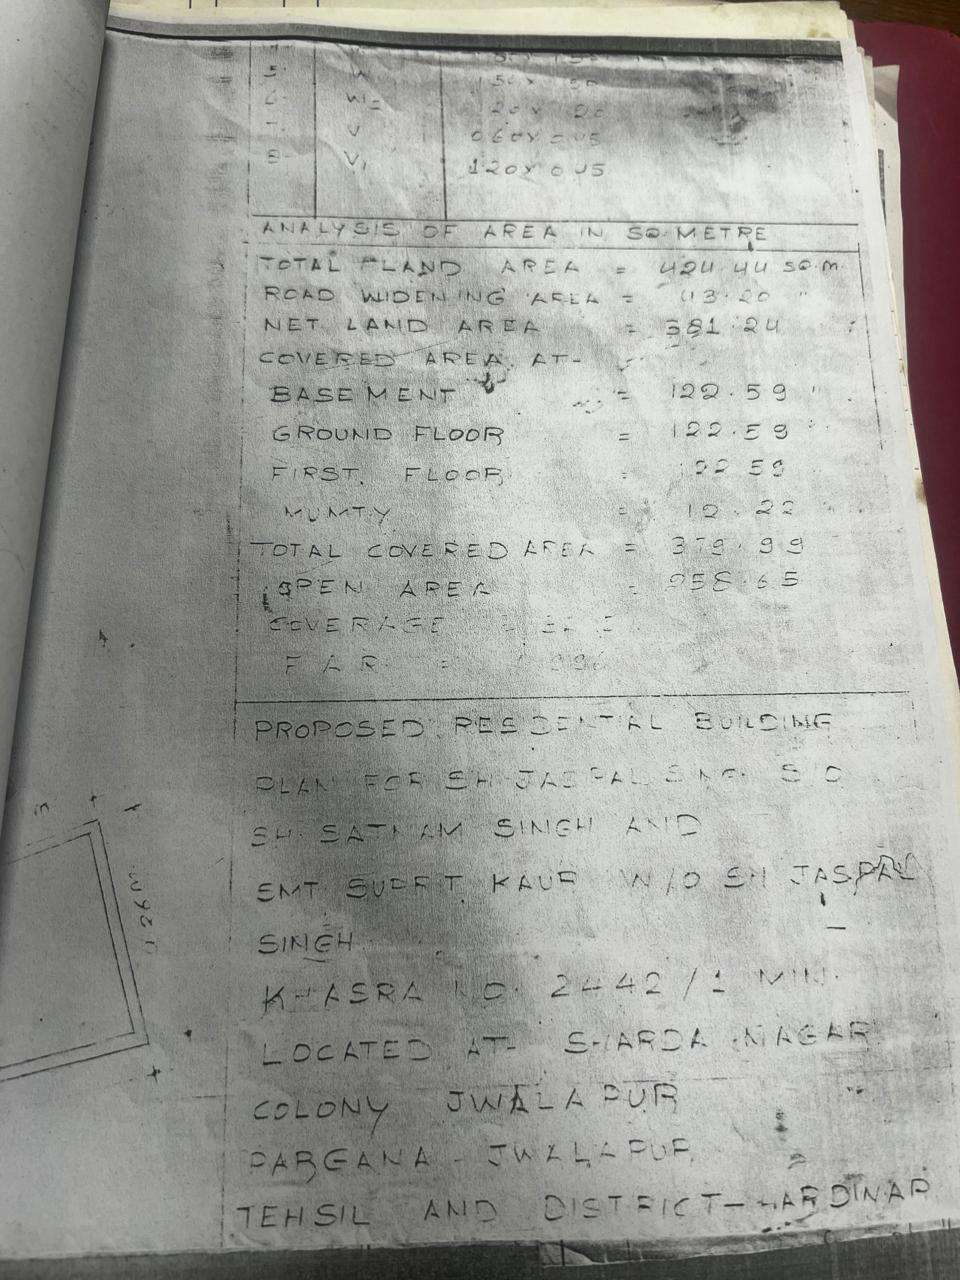 8- V1 120 X 045
ANALYSIS OF AREA IN SQ. METRE
TOTAL LAND AREA = 424.44 SQ.M.
ROAD WIDENING AREA = 43.20 "
NET LAND AREA = 381.24
COVERED AREA AT-
BASEMENT = 122.59 "
GROUND FLOOR = 122.59 "
FIRST FLOOR = 122.59
MUMTY = 12.22
TOTAL COVERED AREA = 379.99
OPEN AREA = 258.65
COVERAGE
F A R =
PROPOSED RESIDENTIAL BUILDING
PLAN FOR SH. JASPAL SINGH S/O
SH. SATNAM SINGH AND
SMT KAUR W/O SH JASPAL
SINGH
KHASRA NO. 2442/1 MIN.
LOCATED AT- SHARDA NAGAR
COLONY JWALAPUR
PARGANA - JWALAPUR
TEHSIL AND DISTRICT- HARDWAR